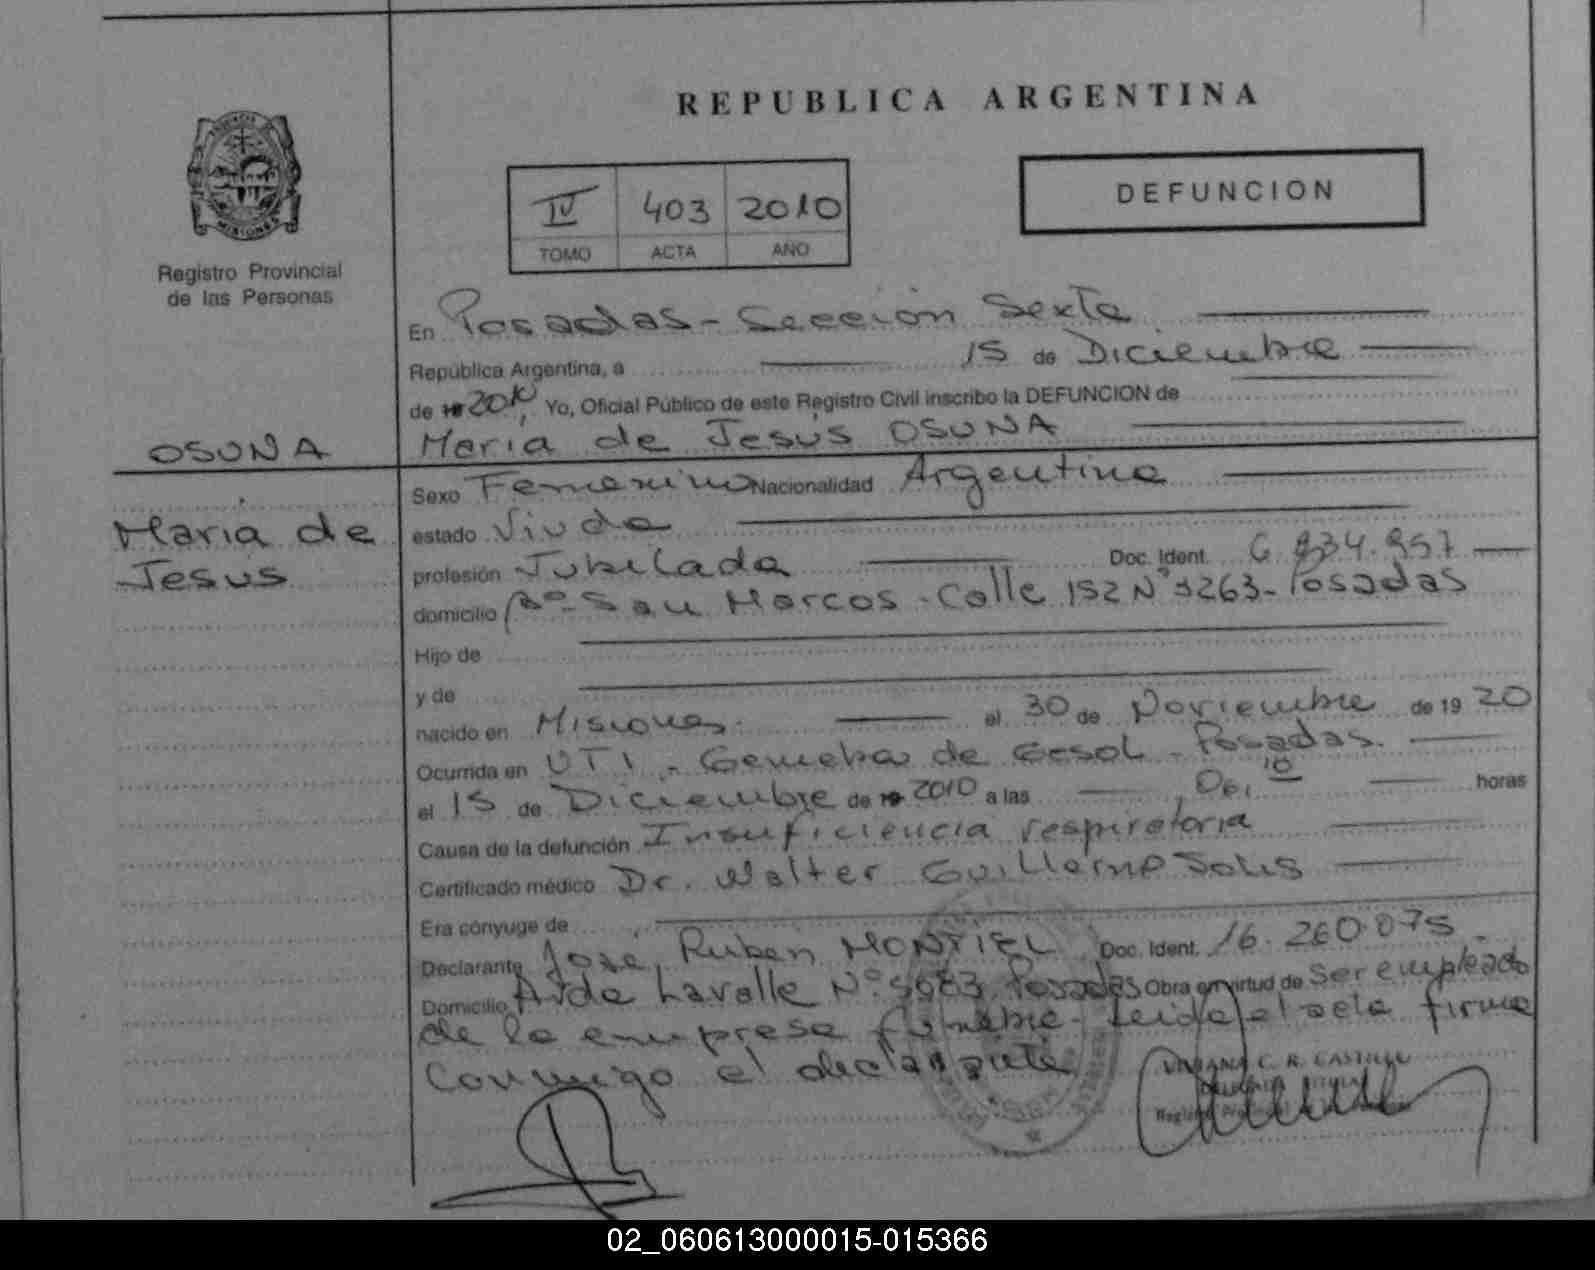 REPUBLICA ARGENTINA
PROVINCIA
MISIONES
Registro Provincial
de las Personas
IV 403 2010
TOMO ACTA AÑO
DEFUNCION
En Posadas - Sección Sexta
República Argentina, a 15 de Diciembre
de 19 2010, Yo, Oficial Público de este Registro Civil inscribo la DEFUNCION de
María de Jesús OSUNA
OSUNA
María de
Jesus
Sexo Femenino Nacionalidad Argentina
estado Viuda
profesión Jubilada Doc. Ident. 6.834.957
domicilio Bº San Marcos - Calle 152 Nº 3263 - Posadas
Hijo de
y de
nacido en Misiones. el 30 de Noviembre de 19 20
Ocurrida en UTI - de Gesol - Posadas.
el 15 de Diciembre de 19 2010 a las 06,10 horas
Causa de la defunción Insuficiencia respiratoria
Certificado médico Dr. Walter Guillermo Solis
Era cónyuge de
Declarante José Ruben MONTIEL Doc. Ident. 16.260.075
Domicilio Avda Lavalle Nº Posadas Obra en virtud de ser empleado
de la empresa fúnebre - Leida el acta firma
conmigo el declarante
C. R. CASTILLO
02_060613000015-015366